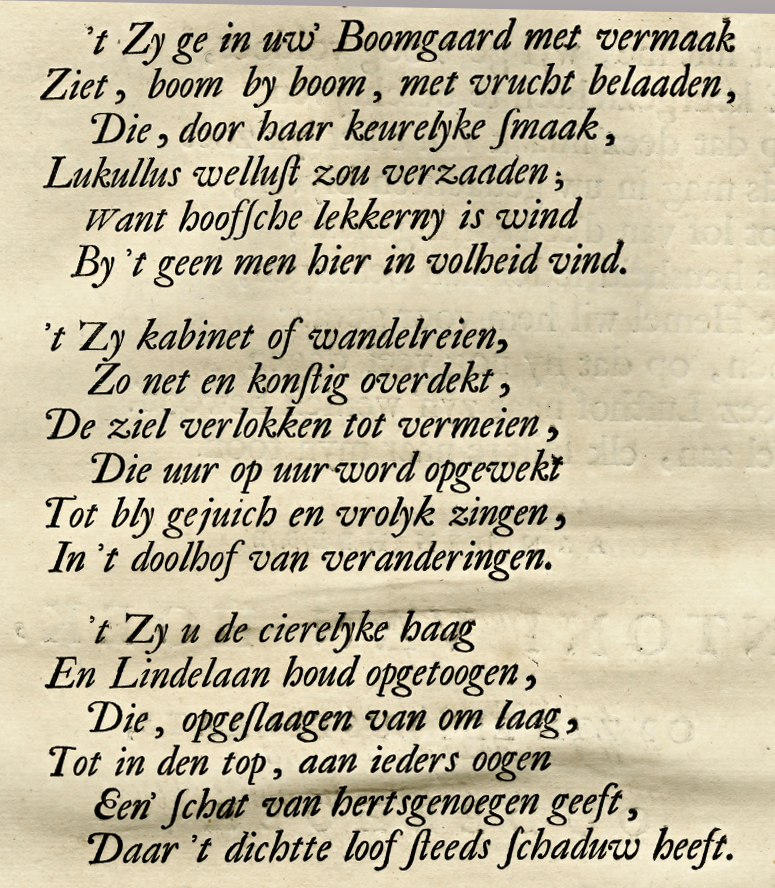 ’t Zy ge in uw’ Boomgaard met vermaak
Ziet, boom by boom, met vrucht belaaden,
Die, door haar keurelyke ſmaak,
Lukullus welluſt zou verzaaden;
Want hoofſche lekkerny is wind
By ’t geen men hier in volheid vind.
’t Zy kabinet of wandelreien,
Zo net en konſtig overdekt,
De ziel verlokken tot vermeien,
Die uur op uur word opgewekt
Tot bly gejuich en vrolyk zingen,
In ’t doolhof van veranderingen.
’t Zy u de cierelyke haag
En Lindelaan houd opgetoogen,
Die, opgeſlaagen van om laag,
Tot in den top, aan ieders oogen
Een’ ſchat van hertsgenoegen geeft,
Daar ’t dichtte loof ſteeds ſchaduw heeft.